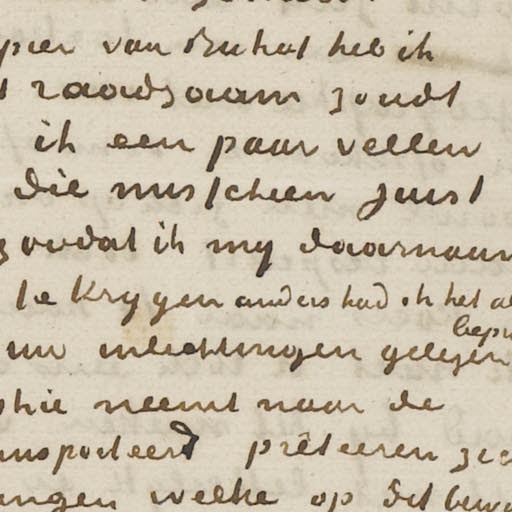 pier van Buhot heb ik
raadzaam zoudt
ik een paar vellen
die misschien juist
zoodat ik my daarnaar
te krygen anders had ik het al
uw inlichtingen gelezen
phie neemt naar de
ansporteerd prêteeren zic
ingen welke op dit